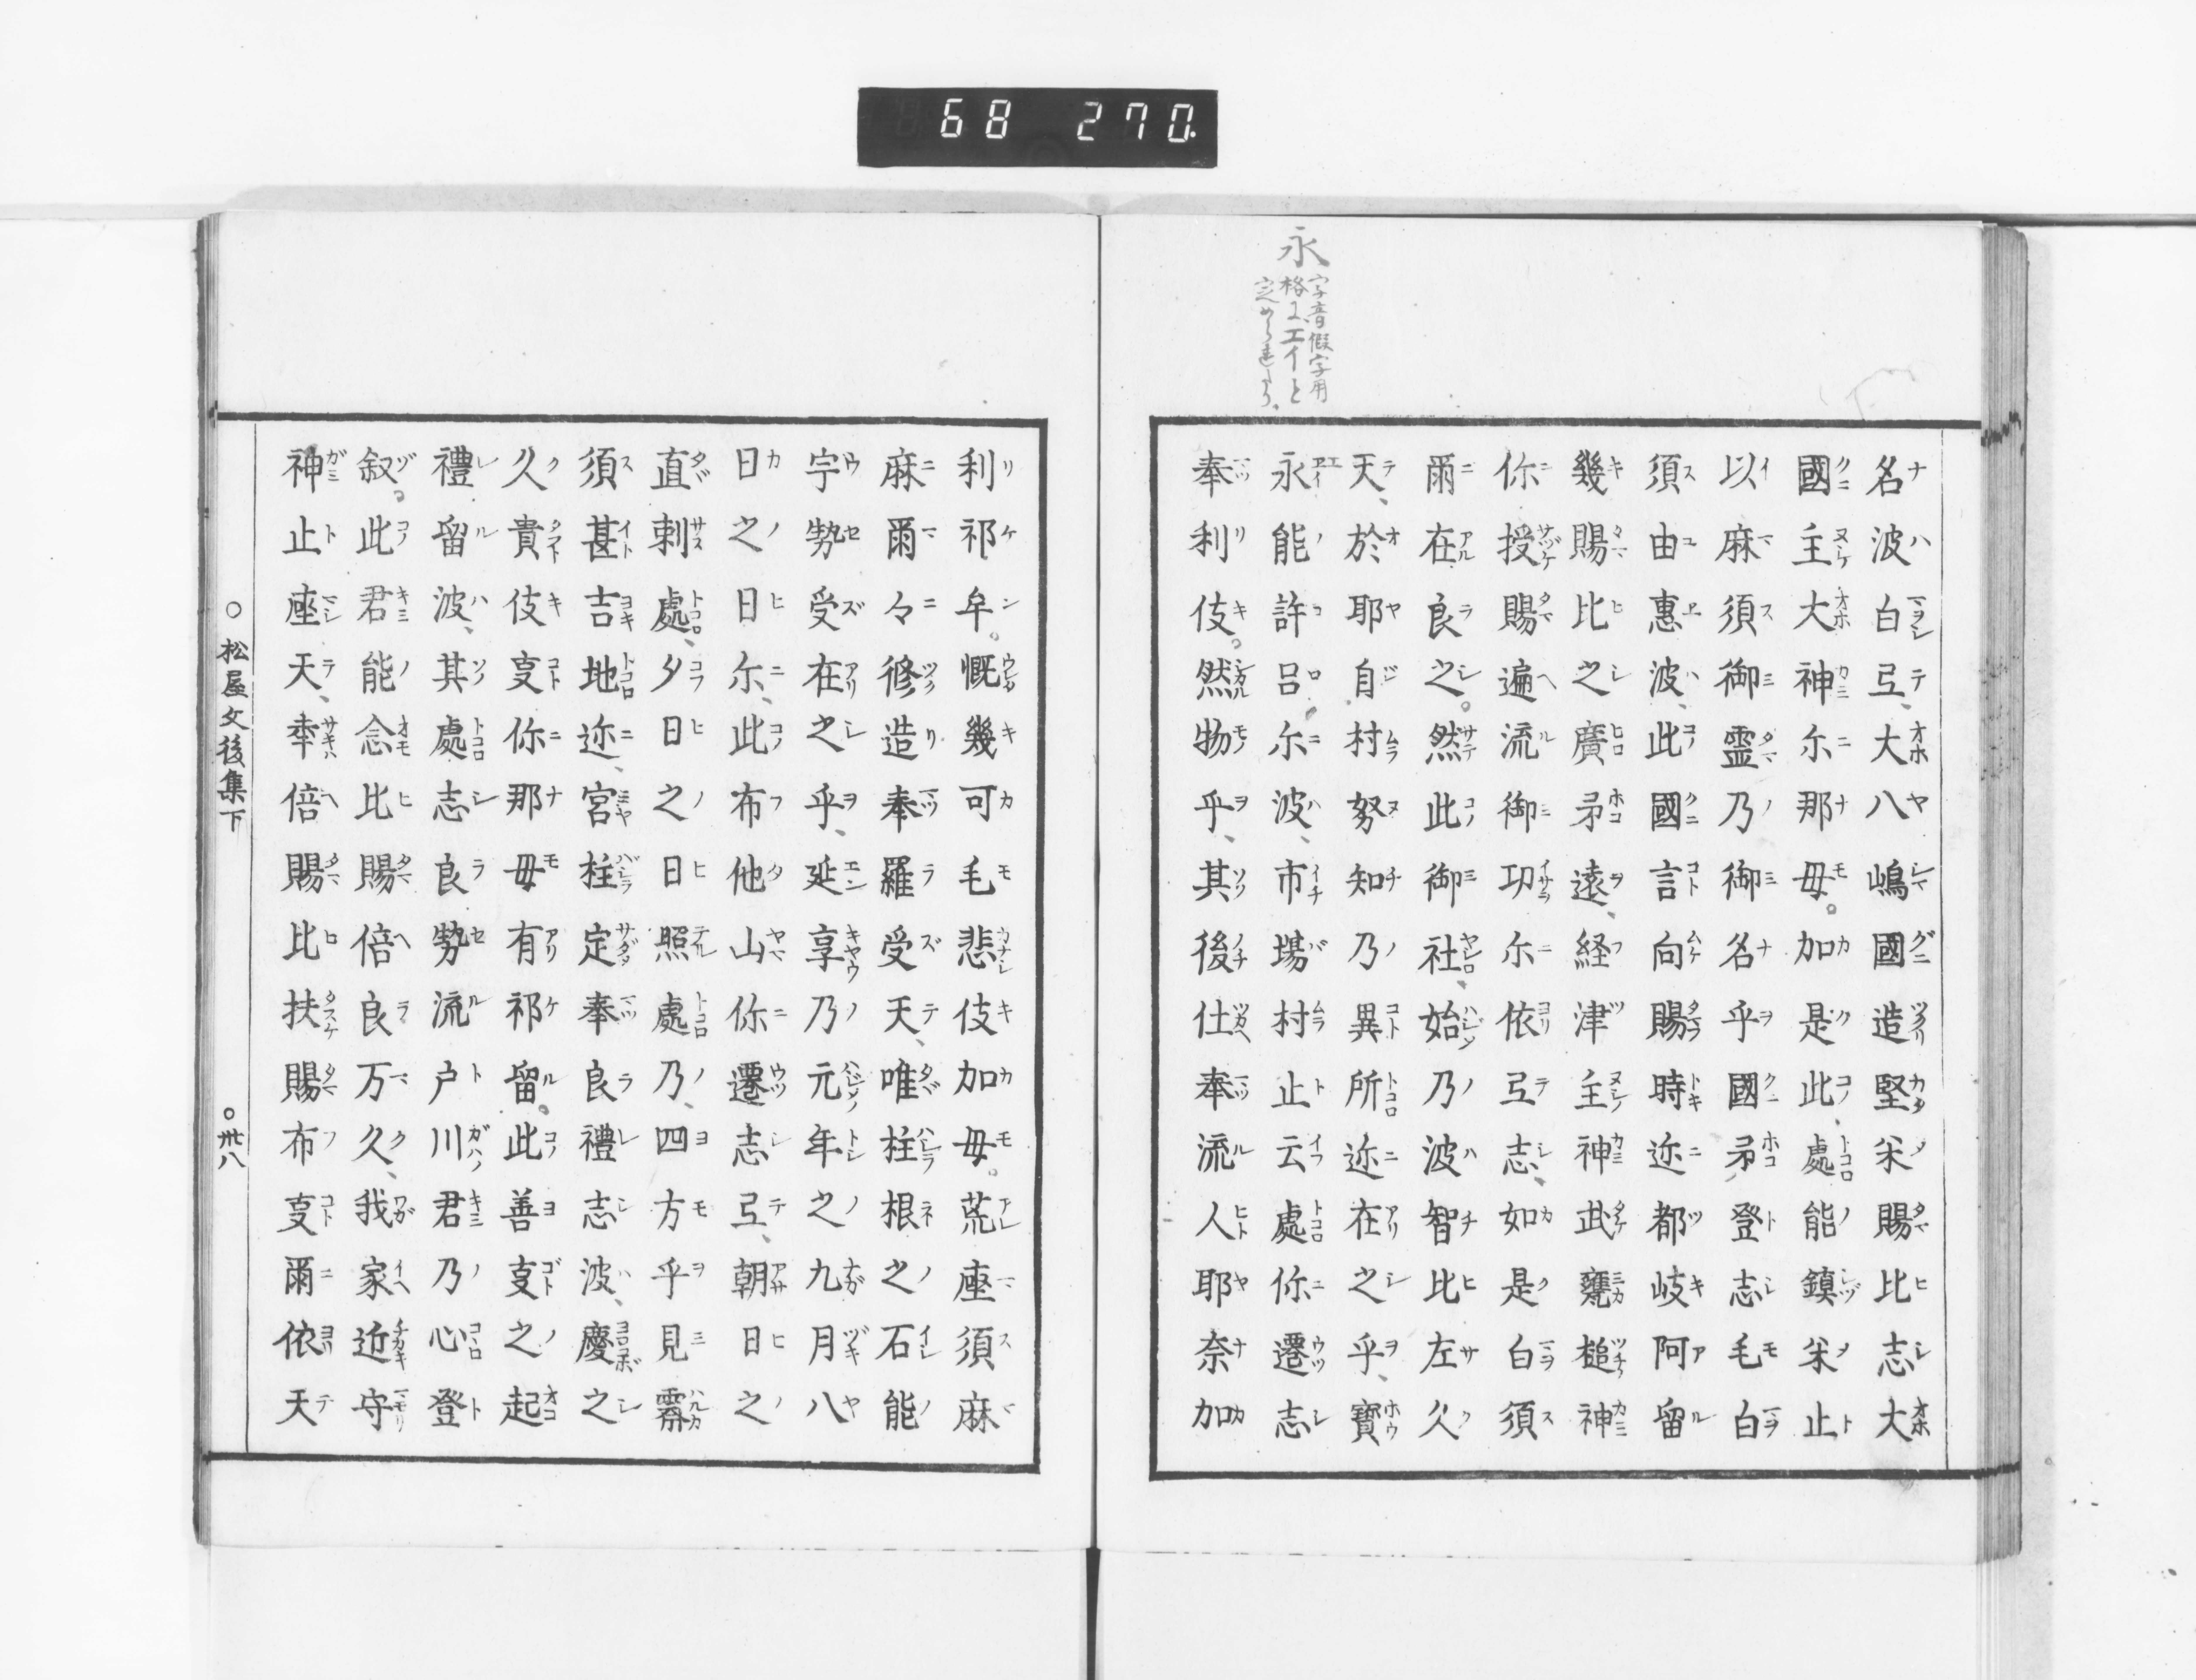 68 270.
永 字音假字用
格にエイと
定めら連たり、
名波白弖、大八嶋國造堅米賜比志大
國主大神尓那毋。加是此、處能鎮米止
以麻須御霊乃御名乎國矛登志毛白
須由惠波、此國言向賜時迩都岐阿留
幾賜比之廣矛遠、経津主神武甕槌神
你授賜遍流御功尓依弖志、如是白須
爾在良之。然此御社、始乃波智比左久
天、於耶自村努知乃異所迩在之乎、寶
永能許呂尓波、市場村止云處你遷志
奉利伎。然物乎、其後仕奉流人耶奈加
利祁牟。慨幾可毛悲伎加毋。荒座須麻
麻爾々修造奉羅受天、唯柱根之石能
宇勢受在之乎、延享乃元年之九月八
日之日尓、此布他山你遷志弖、朝日之
直刺處、夕日之日照處乃、四方乎見霽
須甚吉地迩、宮柱定奉良禮志波、慶之
久貴伎㕝你那毋有祁留。此善㕝之起
禮留波、其處志良勢流戸川君乃心登
叙。此君能念比賜倍良万久、我家近守
神止座天、幸倍賜比扶賜布㕝爾依天
○松屋文後集下 ○卅八